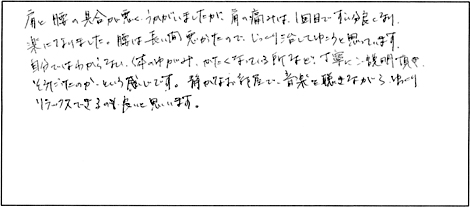 肩と腰の具合が悪く、うかがいましたが、肩の痛みは、1回目でずい分良くなり、
楽になりました。腰は長い間悪かったので、じっくり治してゆこうと思っています。
自分ではわからない、体のゆがみ、かたくなっている所など、丁寧にご説明頂き、
そうだったのか、という感じです。静かなお部屋で、音楽を聴きながら、ゆっくり
リラックスできるのも良いと思います。